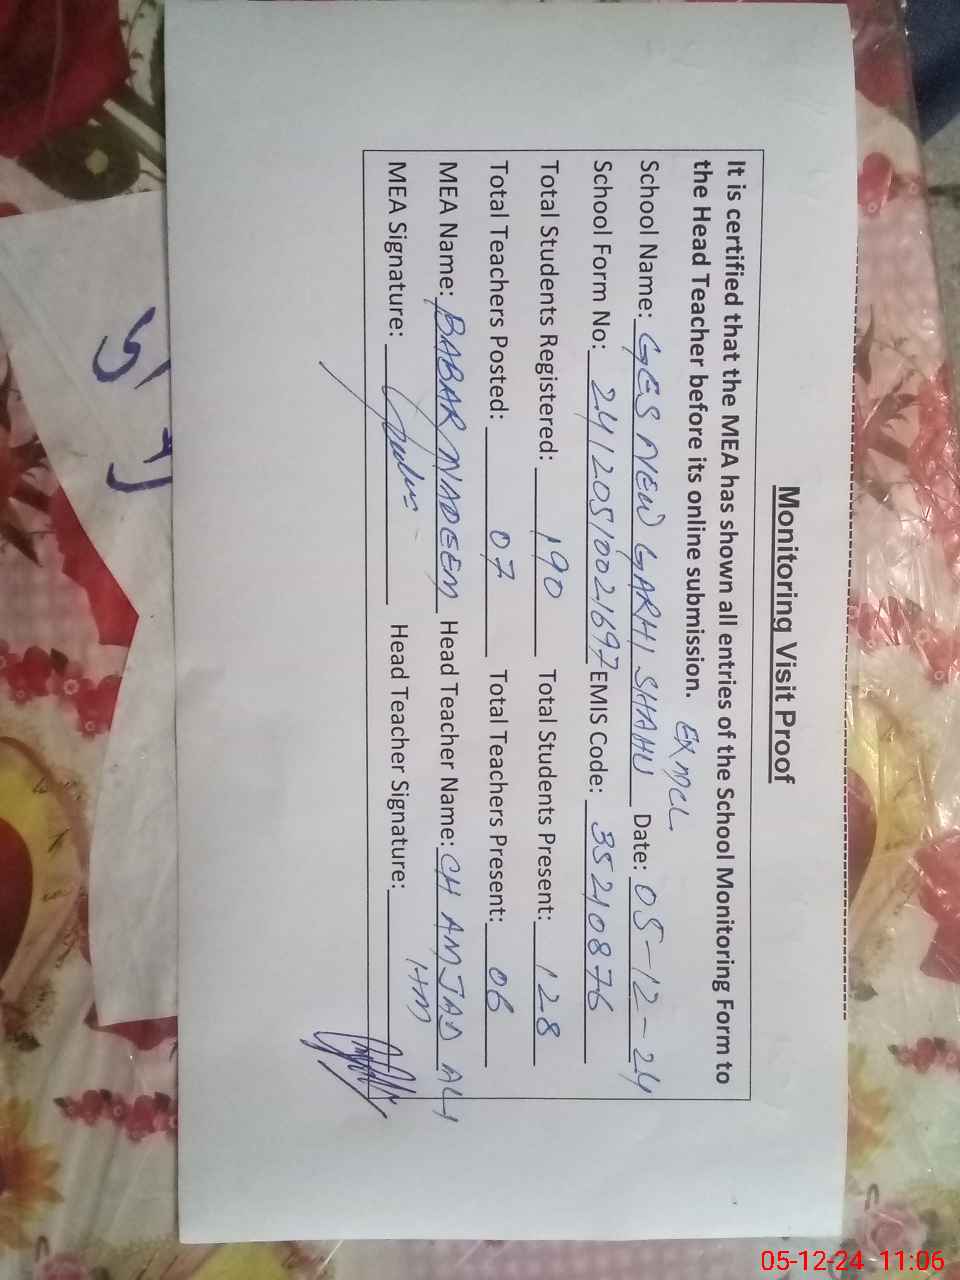 Monitoring Visit Proof
It is certified that the MEA has shown all entries of the School Monitoring Form to
the Head Teacher before its online submission. EX MCL
School Name: GES NEW GARHI SHAHU Date: 05-12-24
School Form No: 24120510021697 EMIS Code: 35210876
Total Students Registered: 190 Total Students Present: 128
Total Teachers Posted: 07 Total Teachers Present: 06
MEA Name: BABAR NADEEM Head Teacher Name: CH AMJAD ALI
MEA Signature: Head Teacher Signature: HM
05-12-24 11:06